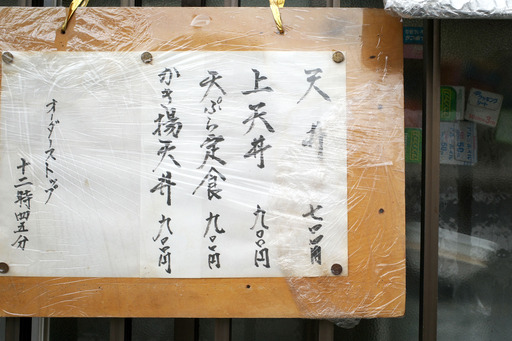 天丼 七〇〇円
上天丼 九〇〇円
天ぷら定食 九〇〇円
かき揚天丼 九〇〇円
オーダーストップ
十二時四五分